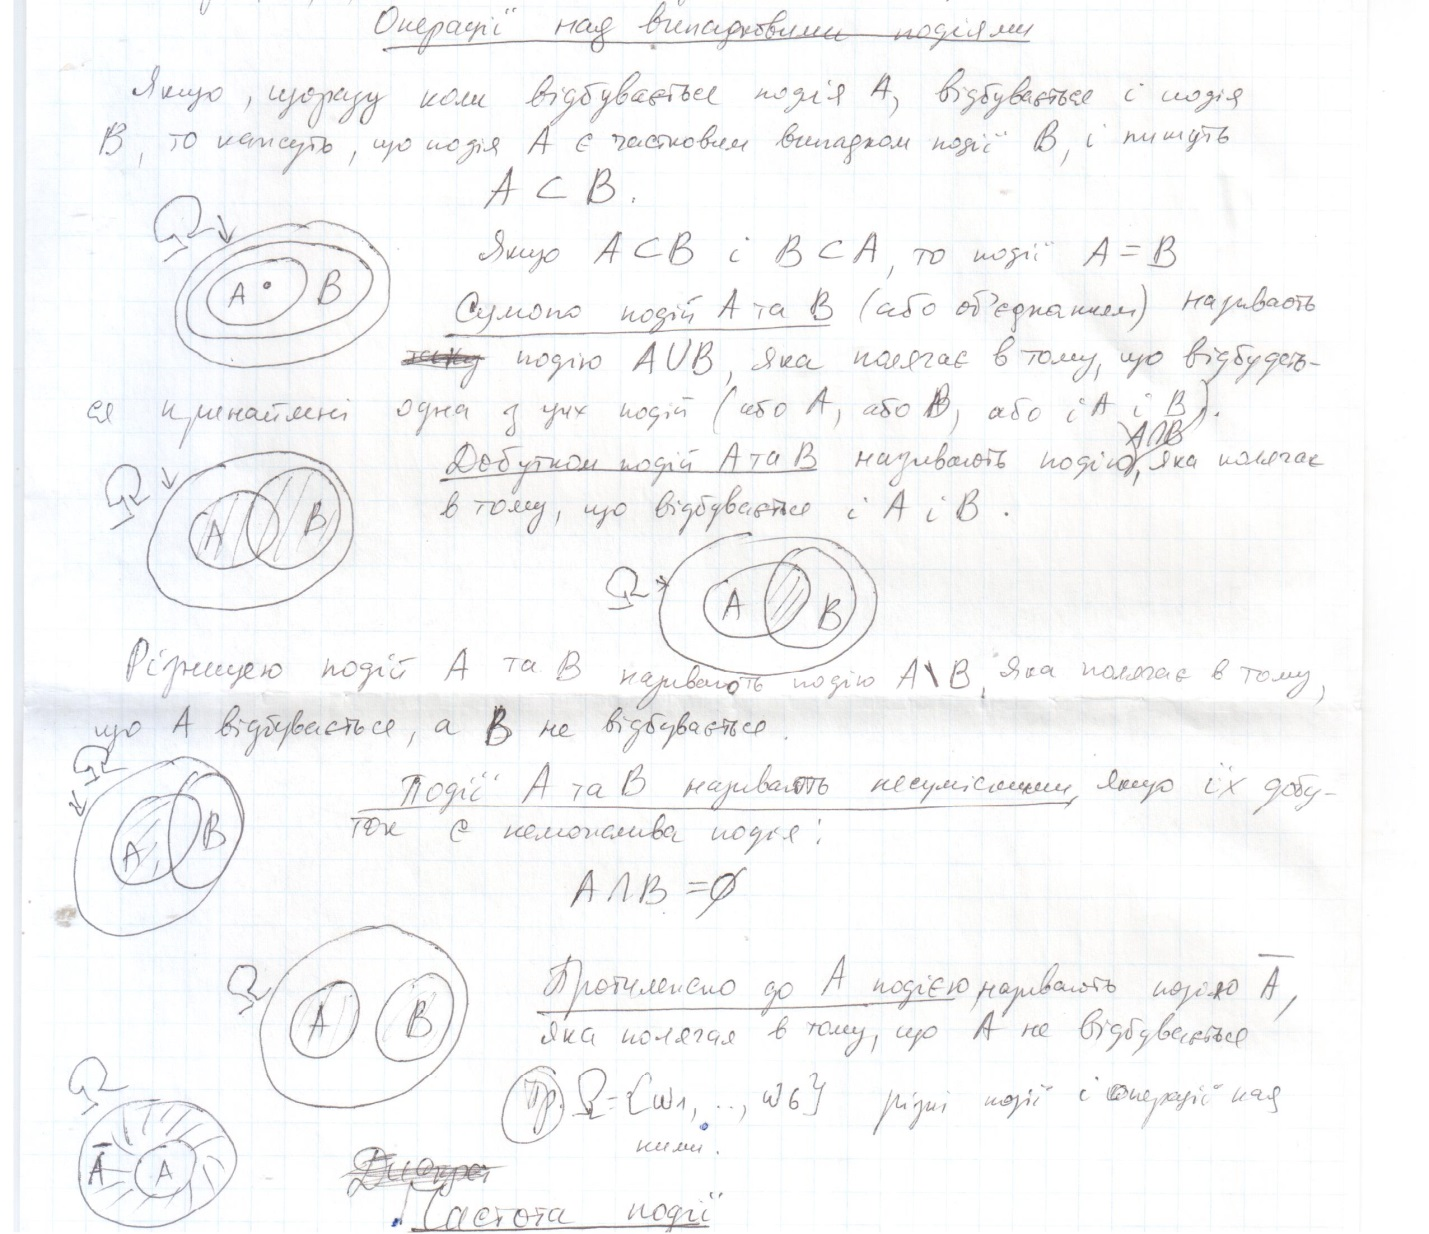 Операції над випадковими подіями
Якщо, щоразу коли відбувається подія А, відбувається і подія
В, то кажуть, що подія А є частковим випадком події В, і пишуть
A ⊂ B.
Ω
A B
Якщо A ⊂ B і B ⊂ A, то події A = B
Сумою подій А та В (або об'єднанням) називають
подію A∪B, яка полягає в тому, що відбудеть-
ся принаймні одна з цих подій (або А, або В, або і А і В).
A∩B
Добутком подій А та В називають подію, яка полягає
в тому, що відбувається і А і В.
Ω
A B
Ω
A B
Різницею подій А та В називають подію A\B, яка полягає в тому,
що А відбувається, а В не відбувається.
Ω
A B
Події А та В називають несумісними, якщо їх добу-
ток є неможлива подія:
A∩B = ∅
Ω
A B
Протилежною до А подією називають подію Ā,
яка полягая в тому, що А не відбувається
Пр. Ω = {ω1, .., ω6} різні події і операції над
ними.
Ω
Ā A
Частота події